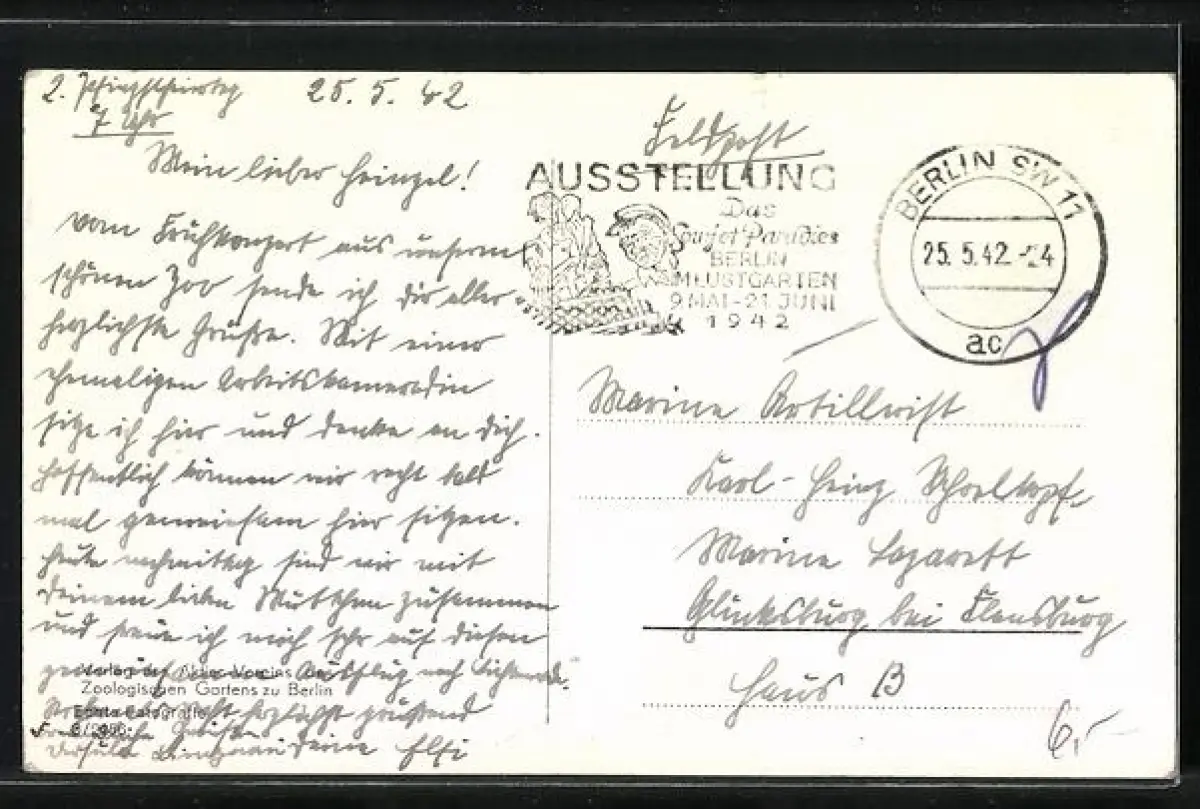 2. Pfingstfeiertag 25.5.42
7 Uhr
Mein lieber Heinzel!
vom Frühkonzert aus unserm
schönen Zoo sende ich dir aller-
herzlichste Grüße. Mit einer
ehemaligen Arbeitskameradin
sitze ich hier und denke an dich.
Hoffentlich können wir recht bald
mal gemeinsam hier sitzen.
Heute nachmittag sind wir mit
deinem lieben Muttchen zusammen
und freue ich mich sehr auf diesen
Ausflug nach
herzlichst grüßend
deine Elfi
Verlag des Aktien-Vereins des
Zoologischen Gartens zu Berlin
Echte Fotografie
Feldpost
AUSSTELLUNG
Das
Sowjet Paradies
BERLIN
IM LUSTGARTEN
9 MAI-21 JUNI
1942
BERLIN SW 11
25.5.42.-24
ac
Marine Artillerist
Karl-Heinz Schoelkopf
Marine Lazarett
Glücksburg bei Flensburg
Haus B
6,-